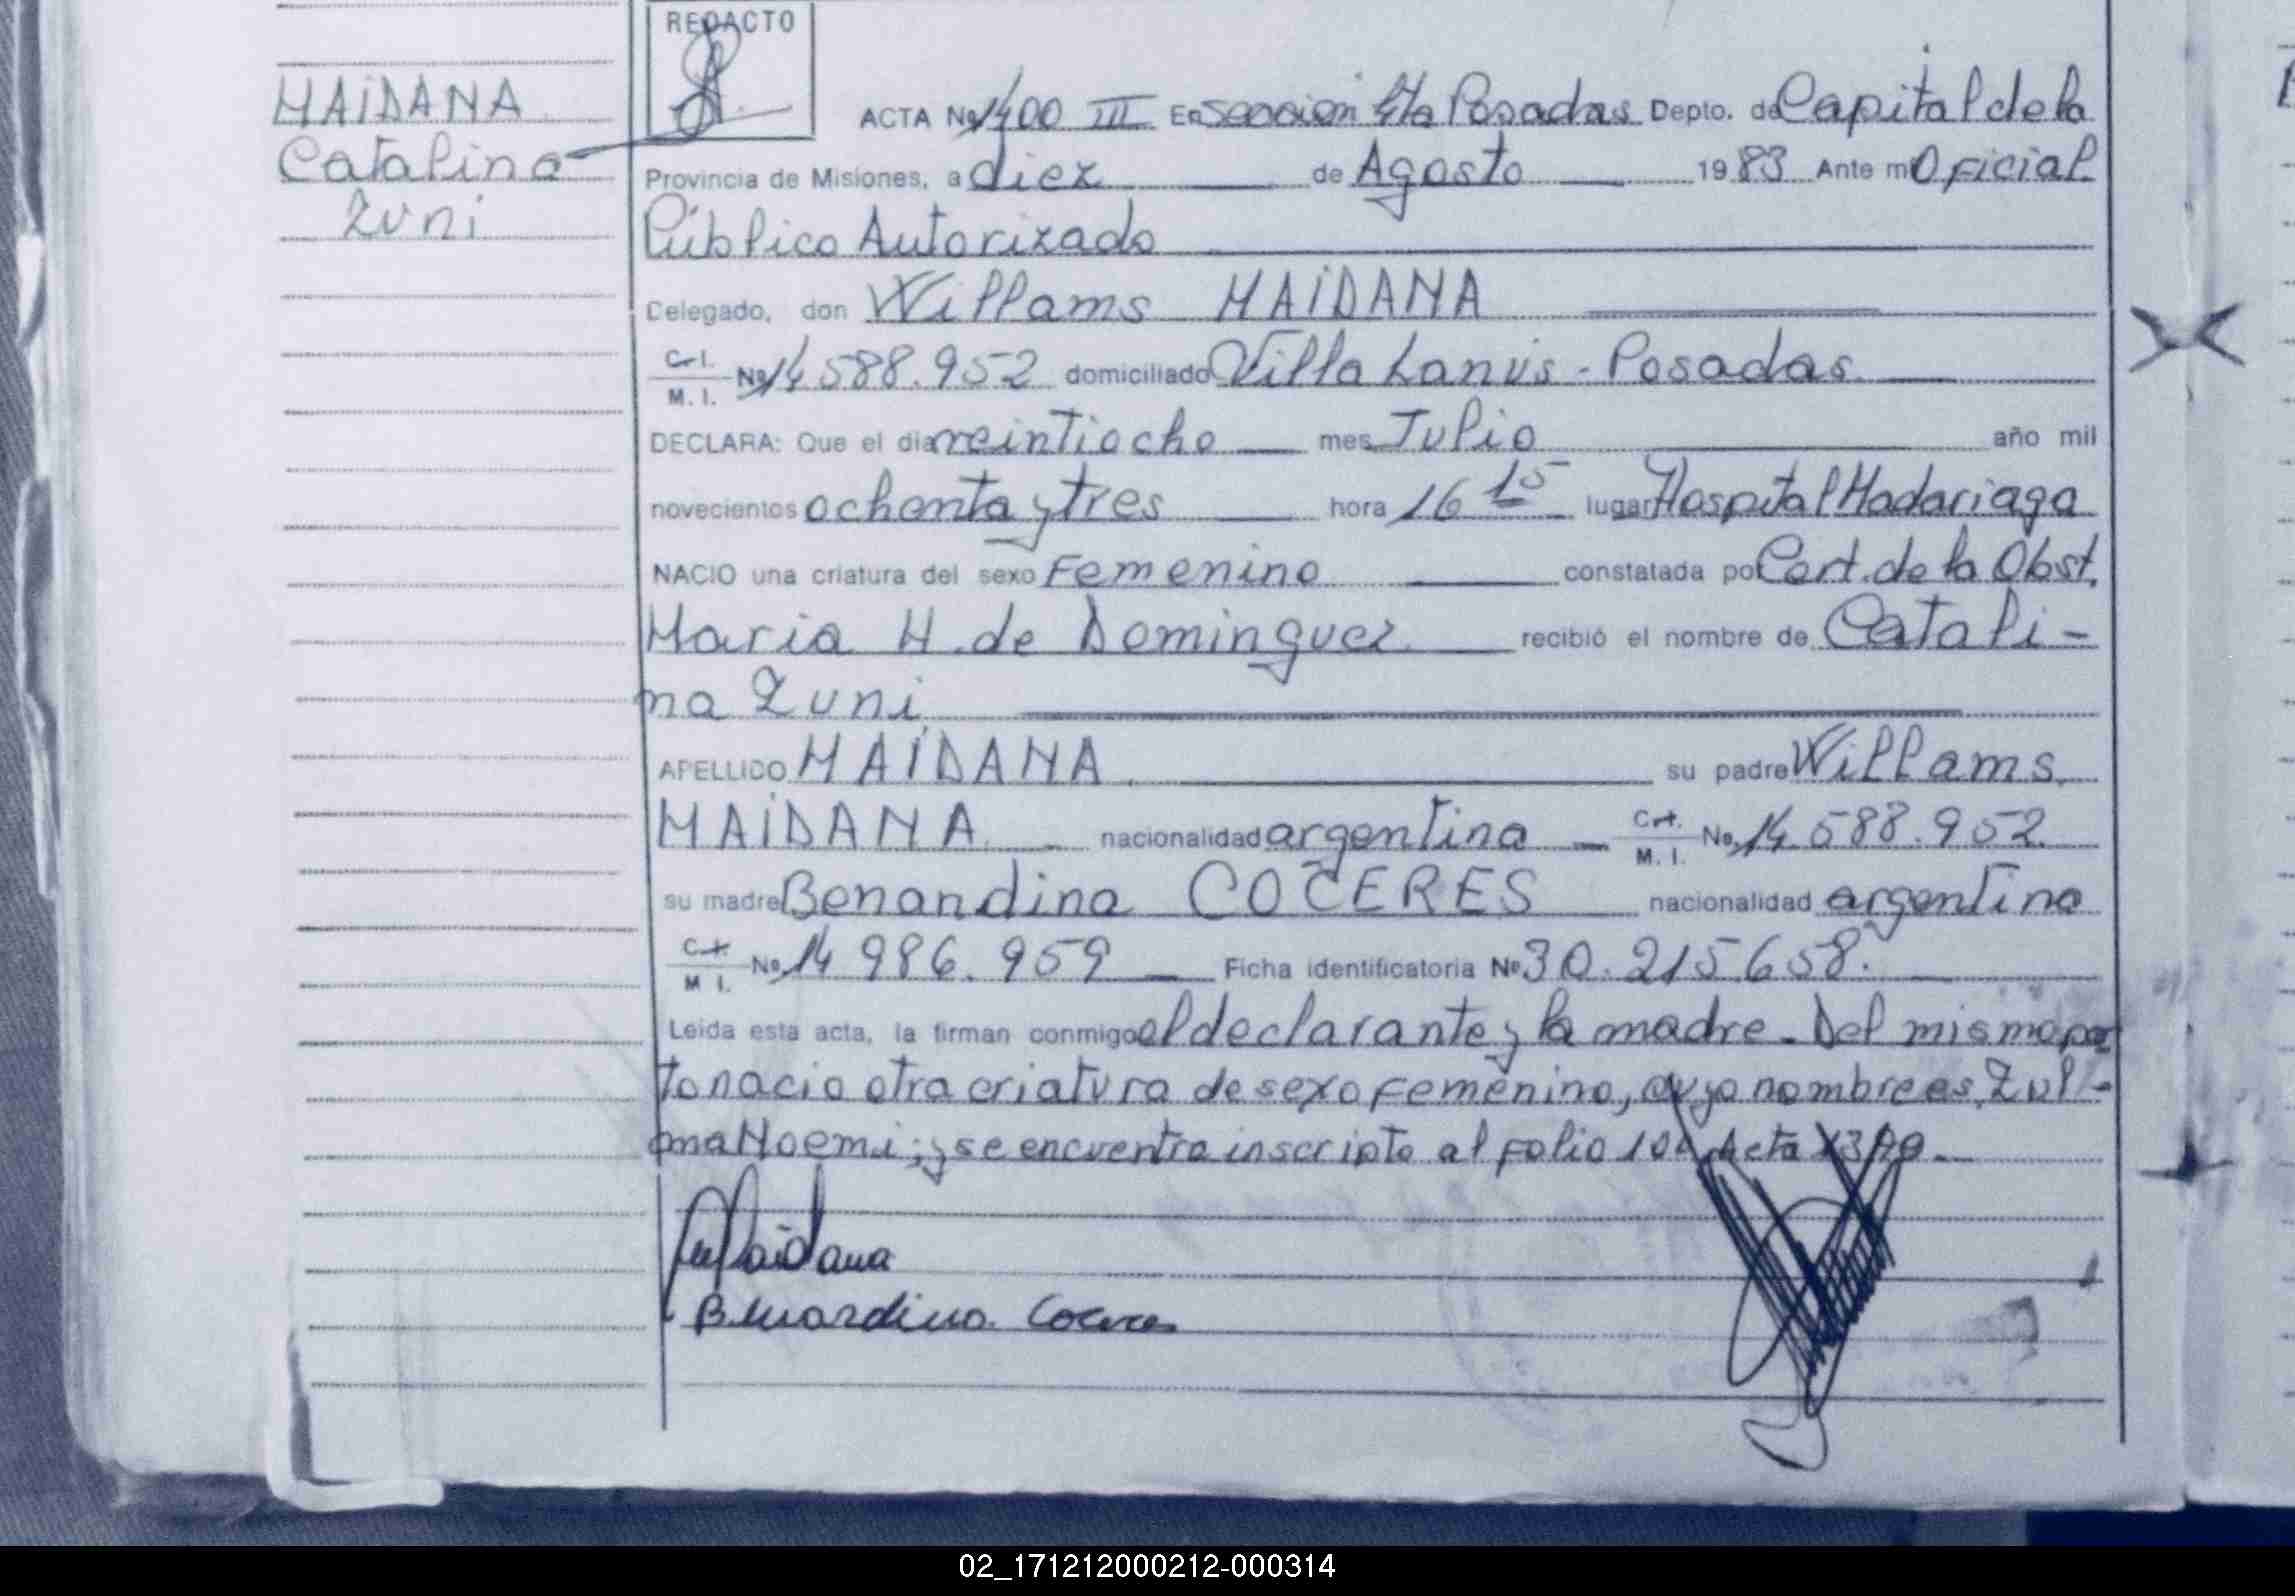 REDACTO
MAIDANA
Catalina
Zuni
ACTA Nº 1400 III En sección 4ta Posadas Depto. de Capital de la
Provincia de Misiones, a diez de Agosto 1983 Ante mi Oficial
Público Autorizado
Delegado, don Willams MAIDANA
C.I. M.I. Nº 14 588.952 domiciliado Villa Lanús - Posadas
DECLARA: Que el dia veintiocho mes Julio año mil
novecientos ochenta y tres hora 16 15 lugar Hospital Madariaga
NACIO una criatura del sexo Femenino constatada por Cert. de la Obst.
Maria H. de Dominguez recibió el nombre de Catali-
na Zuni
APELLIDO MAIDANA su padre Willams
MAIDANA nacionalidad argentina C.I. M.I. Nº 14.588.952
su madre Benandina COCERES nacionalidad argentina
C.I. M.I. Nº 14 986.959 Ficha identificatoria Nº 30.215.658.
Leida esta acta, la firman conmigo el declarante y la madre. Del mismo par
to nacio otra criatura de sexo Femenino, cuyo nombre es Zul-
ma Noemi; y se encuentra inscripta al Folio 104 Acta
Maidana
Bernardina Coceres
02_171212000212-000314